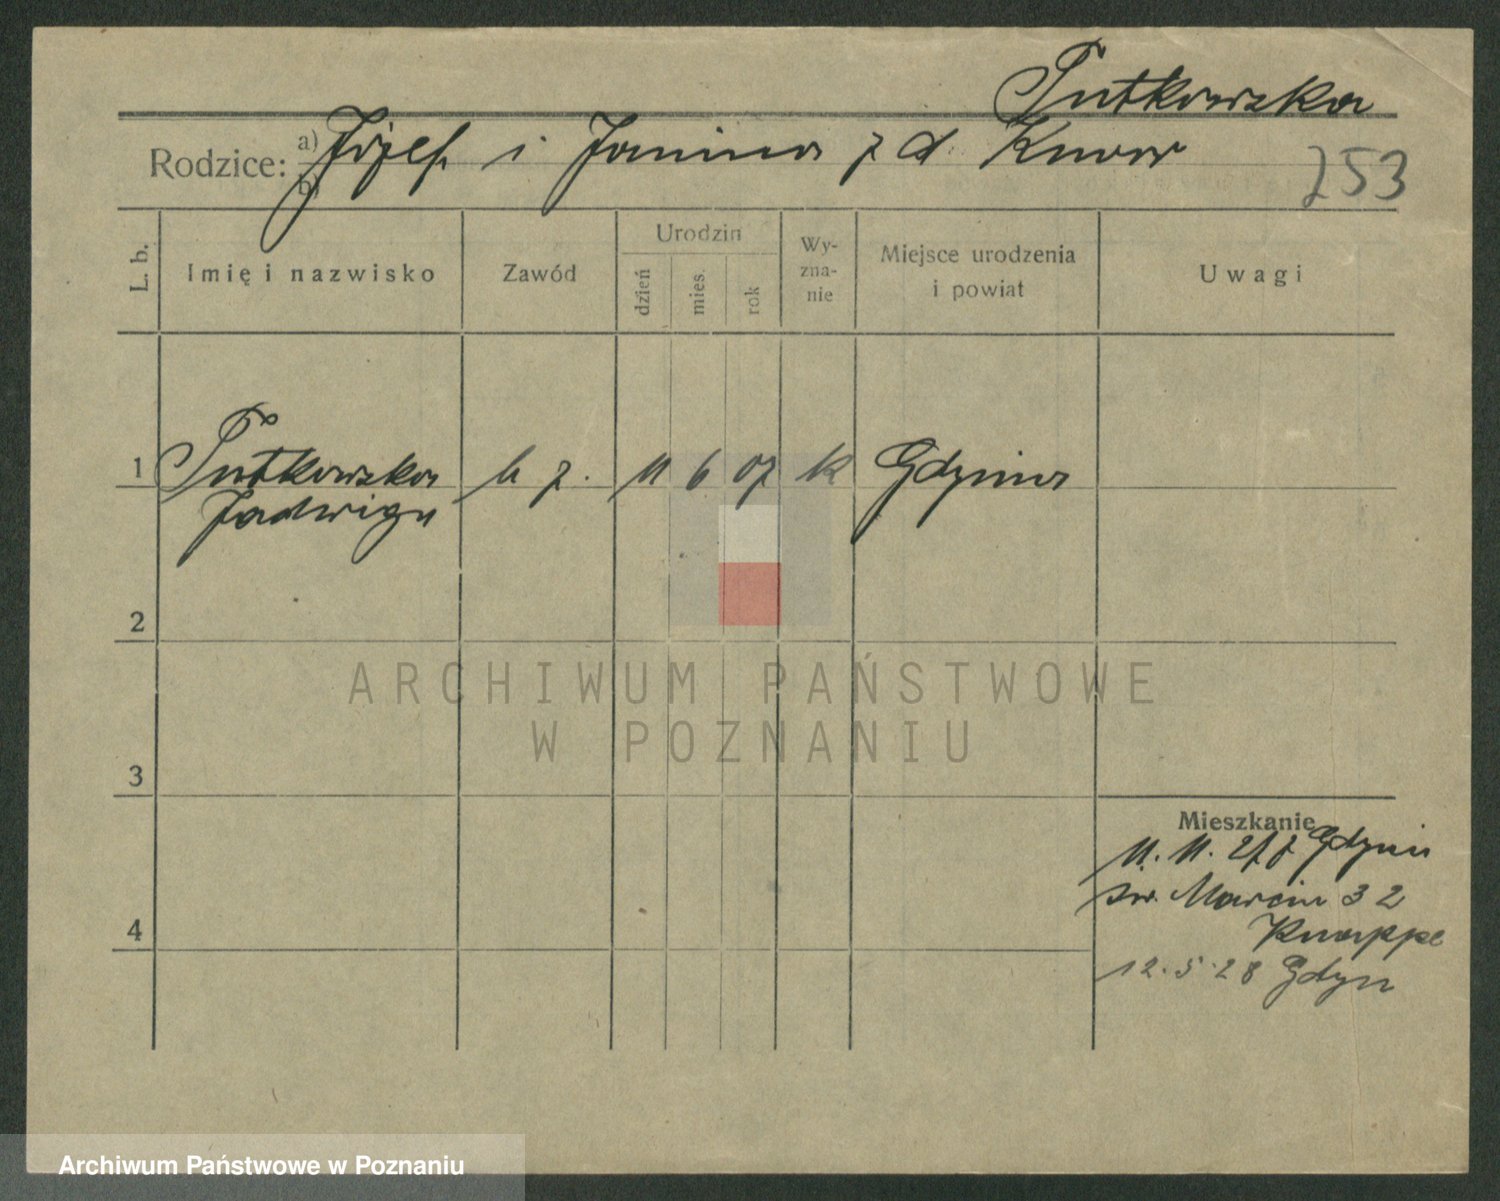 Putkowska
Rodzice: a) Józef i Janina z d. Knor
b)
253
L. b.
Imię i nazwisko
Zawód
Urodzin
dzień
mies.
rok
Wy-
zna-
nie
Miejsce urodzenia
i powiat
Uwagi
1 Putkowska b z. 11 6 07 k Gdynia
Jadwiga
2
3
4
Mieszkanie
11. 11. 27 z Gdyni
św. Marcin 32
Knappe
12.5.28 Gdyn
ARCHIWUM PAŃSTWOWE
W POZNANIU
Archiwum Państwowe w Poznaniu